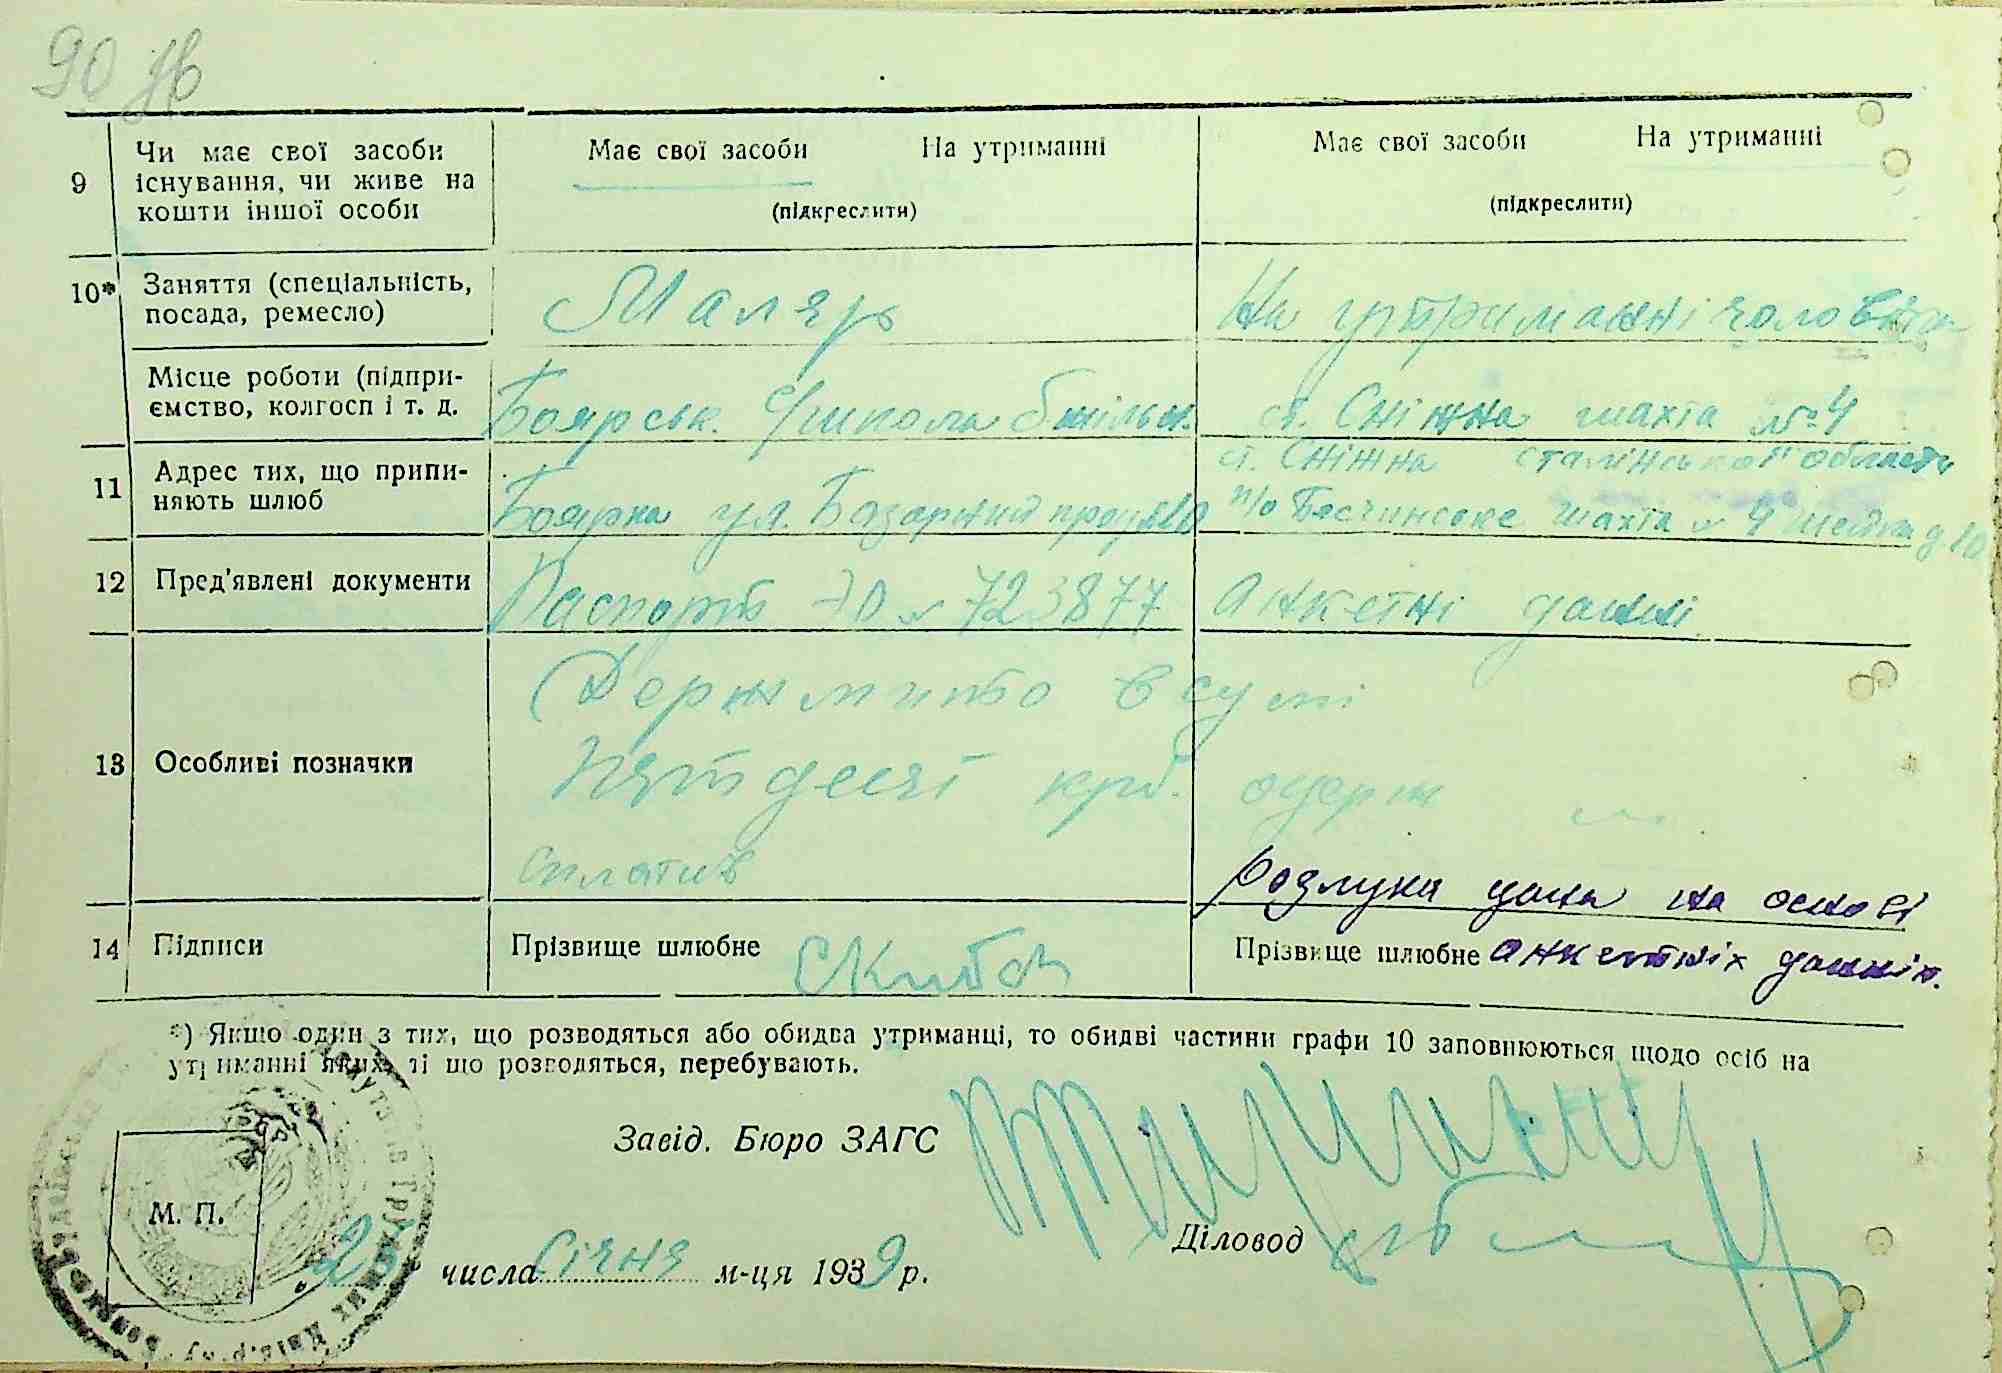 90
9 Чи має свої засоби існування, чи живе на кошти іншої особи
Має свої засоби На утриманні
(підкреслити)
Має свої засоби На утриманні
(підкреслити)
10* Заняття (спеціальність, посада, ремесло)
Маляр
На утриманні чоловіка
Місце роботи (підприємство, колгосп і т. д.
Боярськ. школа
ст. Сніжна шахта № 4
11 Адрес тих, що припиняють шлюб
Боярка ул. Базарний
ст. Сніжна сталінської области
п/о шахта № 4 д. 10
12 Пред'явлені документи
Паспорт № 723877
Анкетні данні
13 Особливі позначки
Держмито в сумі
пятдесят крб. одерж
сплатив
Розлука дана на основі
анкетніх данніх.
14 Підписи
Прізвище шлюбне Скиба
Прізвище шлюбне
*) Якщо один з тих, що розводяться або обидва утриманці, то обидві частини графи 10 заповнюються щодо осіб на
утриманні яких ті що розводяться, перебувають.
Завід. Бюро ЗАГС
М. П.
Діловод
25 числа Січня м-ця 1939 р.